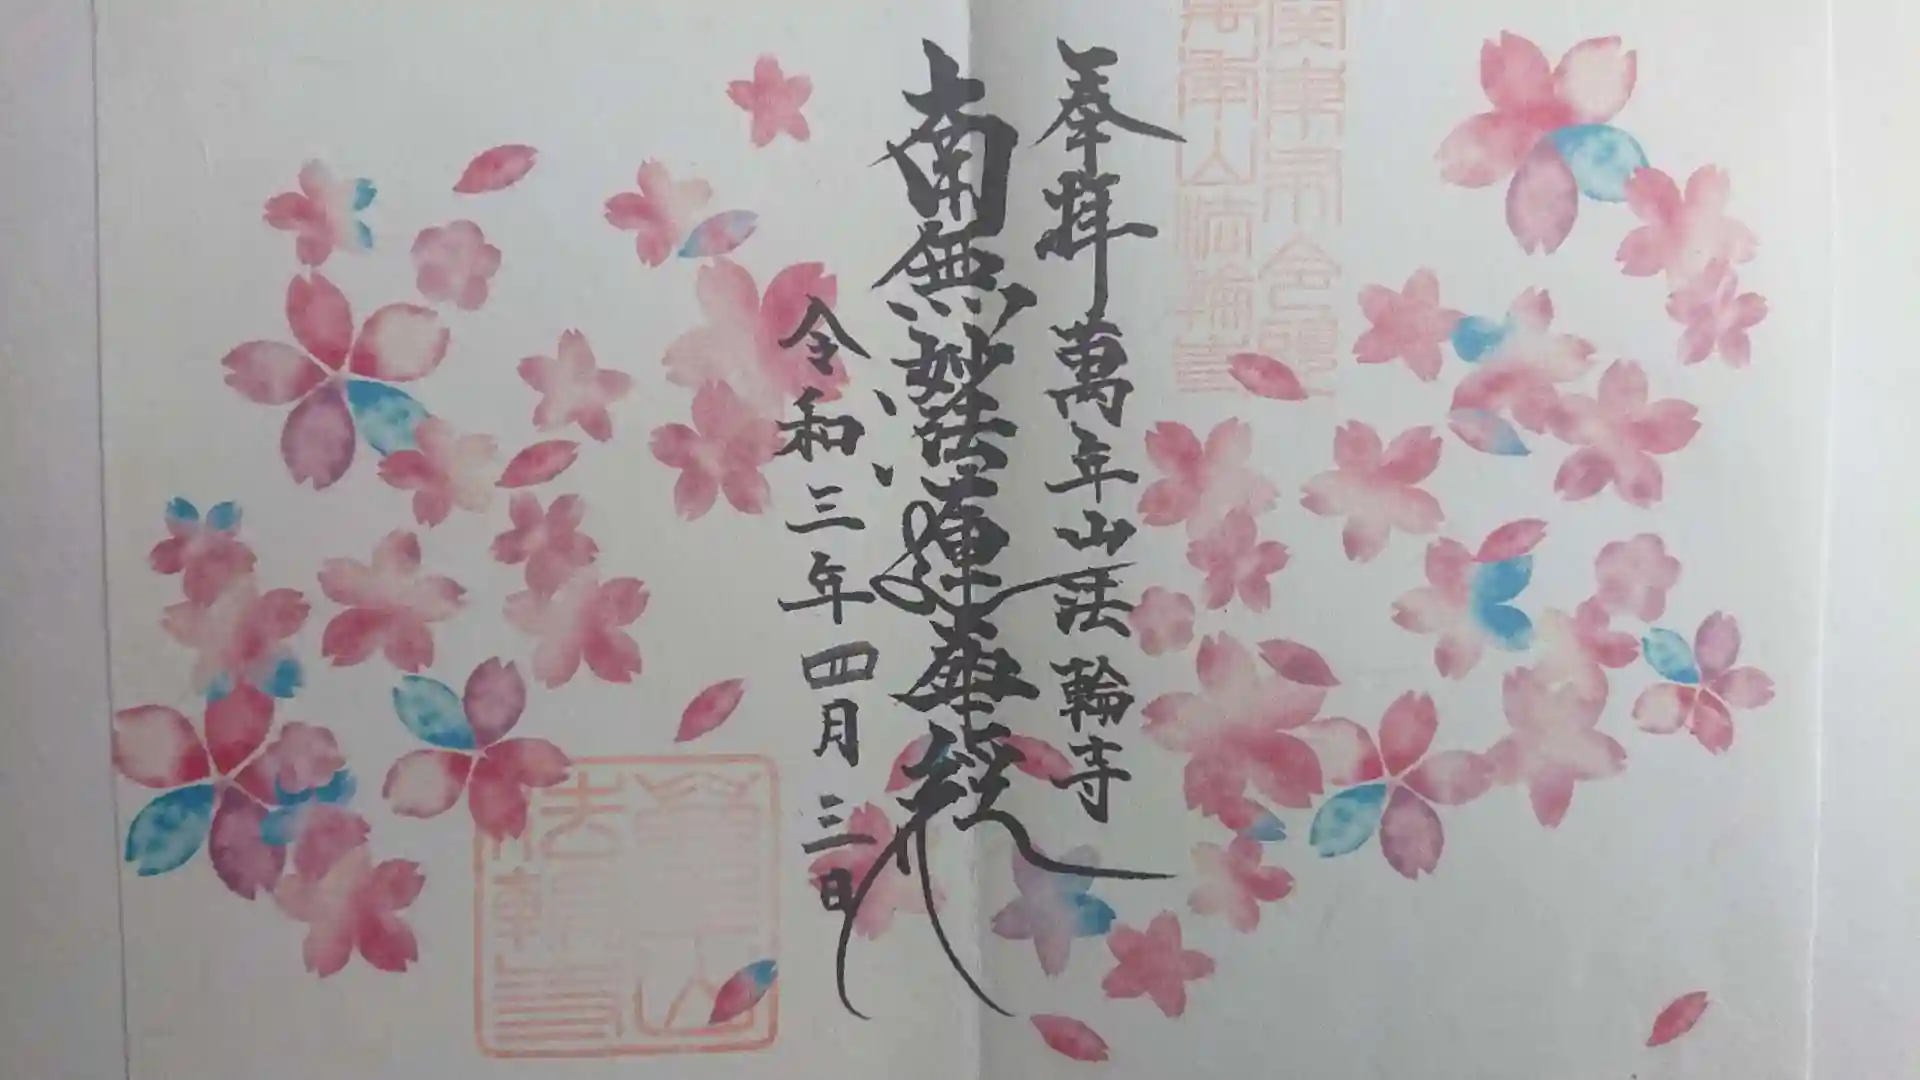 奉拝 萬年山法輪寺
南無妙法蓮華経
令和三年四月三日
萬年山
法輪寺